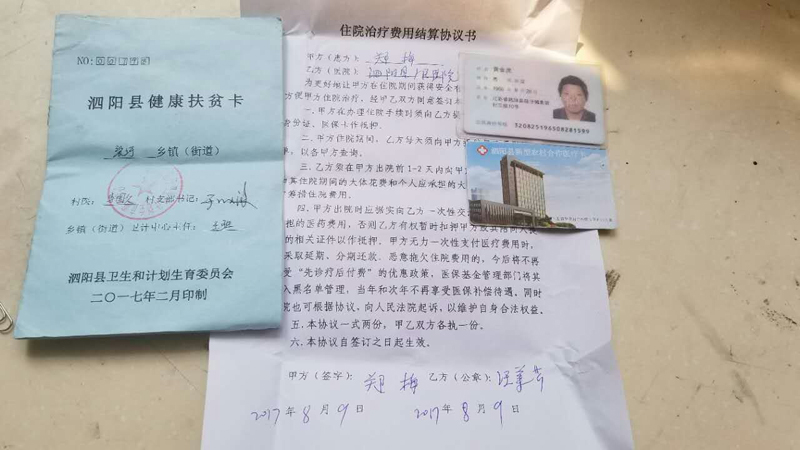 NO:
泗阳县健康扶贫卡
乡镇（街道）
村民：
村支部书记：
乡镇（街道）
泗阳县卫生和计划生育委员会
二〇一七年二月印制
住院治疗费用结算协议书
甲方（患方）：郑 梅
乙方（医院）：泗阳县人民医院
为更好地让甲方在住院期间获得安全有
方便甲方住院治疗，经甲乙双方同意签订本
一.甲方在办理住院手续时须向乙方提
份证、医保卡作抵押。
二.甲方住院期间，乙方每天须向甲方
单，以备甲方查询。
三.乙方须在甲方出院前1-2天内向甲方
其住院期间的大体花费和个人应承担的大
筹措住院费用。
四.甲方出院时应据实向乙方一次性交
担的医药费用，否则乙方有权暂时扣押甲方
的相关证件以作抵押。甲方无力一次性支付医疗费用时，
采取延期、分期还款。恶意拖欠住院费用的，今后将不再
受“先诊疗后付费”的优惠政策，医保基金管理部门将其
入黑名单管理，当年和次年不再享受医保补偿待遇。同时
院也可根据协议，向人民法院起诉，以维护自身合法权益。
五.本协议一式两份，甲乙双方各执一份。
六.本协议自签订之日起生效。
甲方（签字）：郑 梅 乙方（公章）：
2017年8月9日 2017年8月9日
泗阳县新型农村合作医疗卡